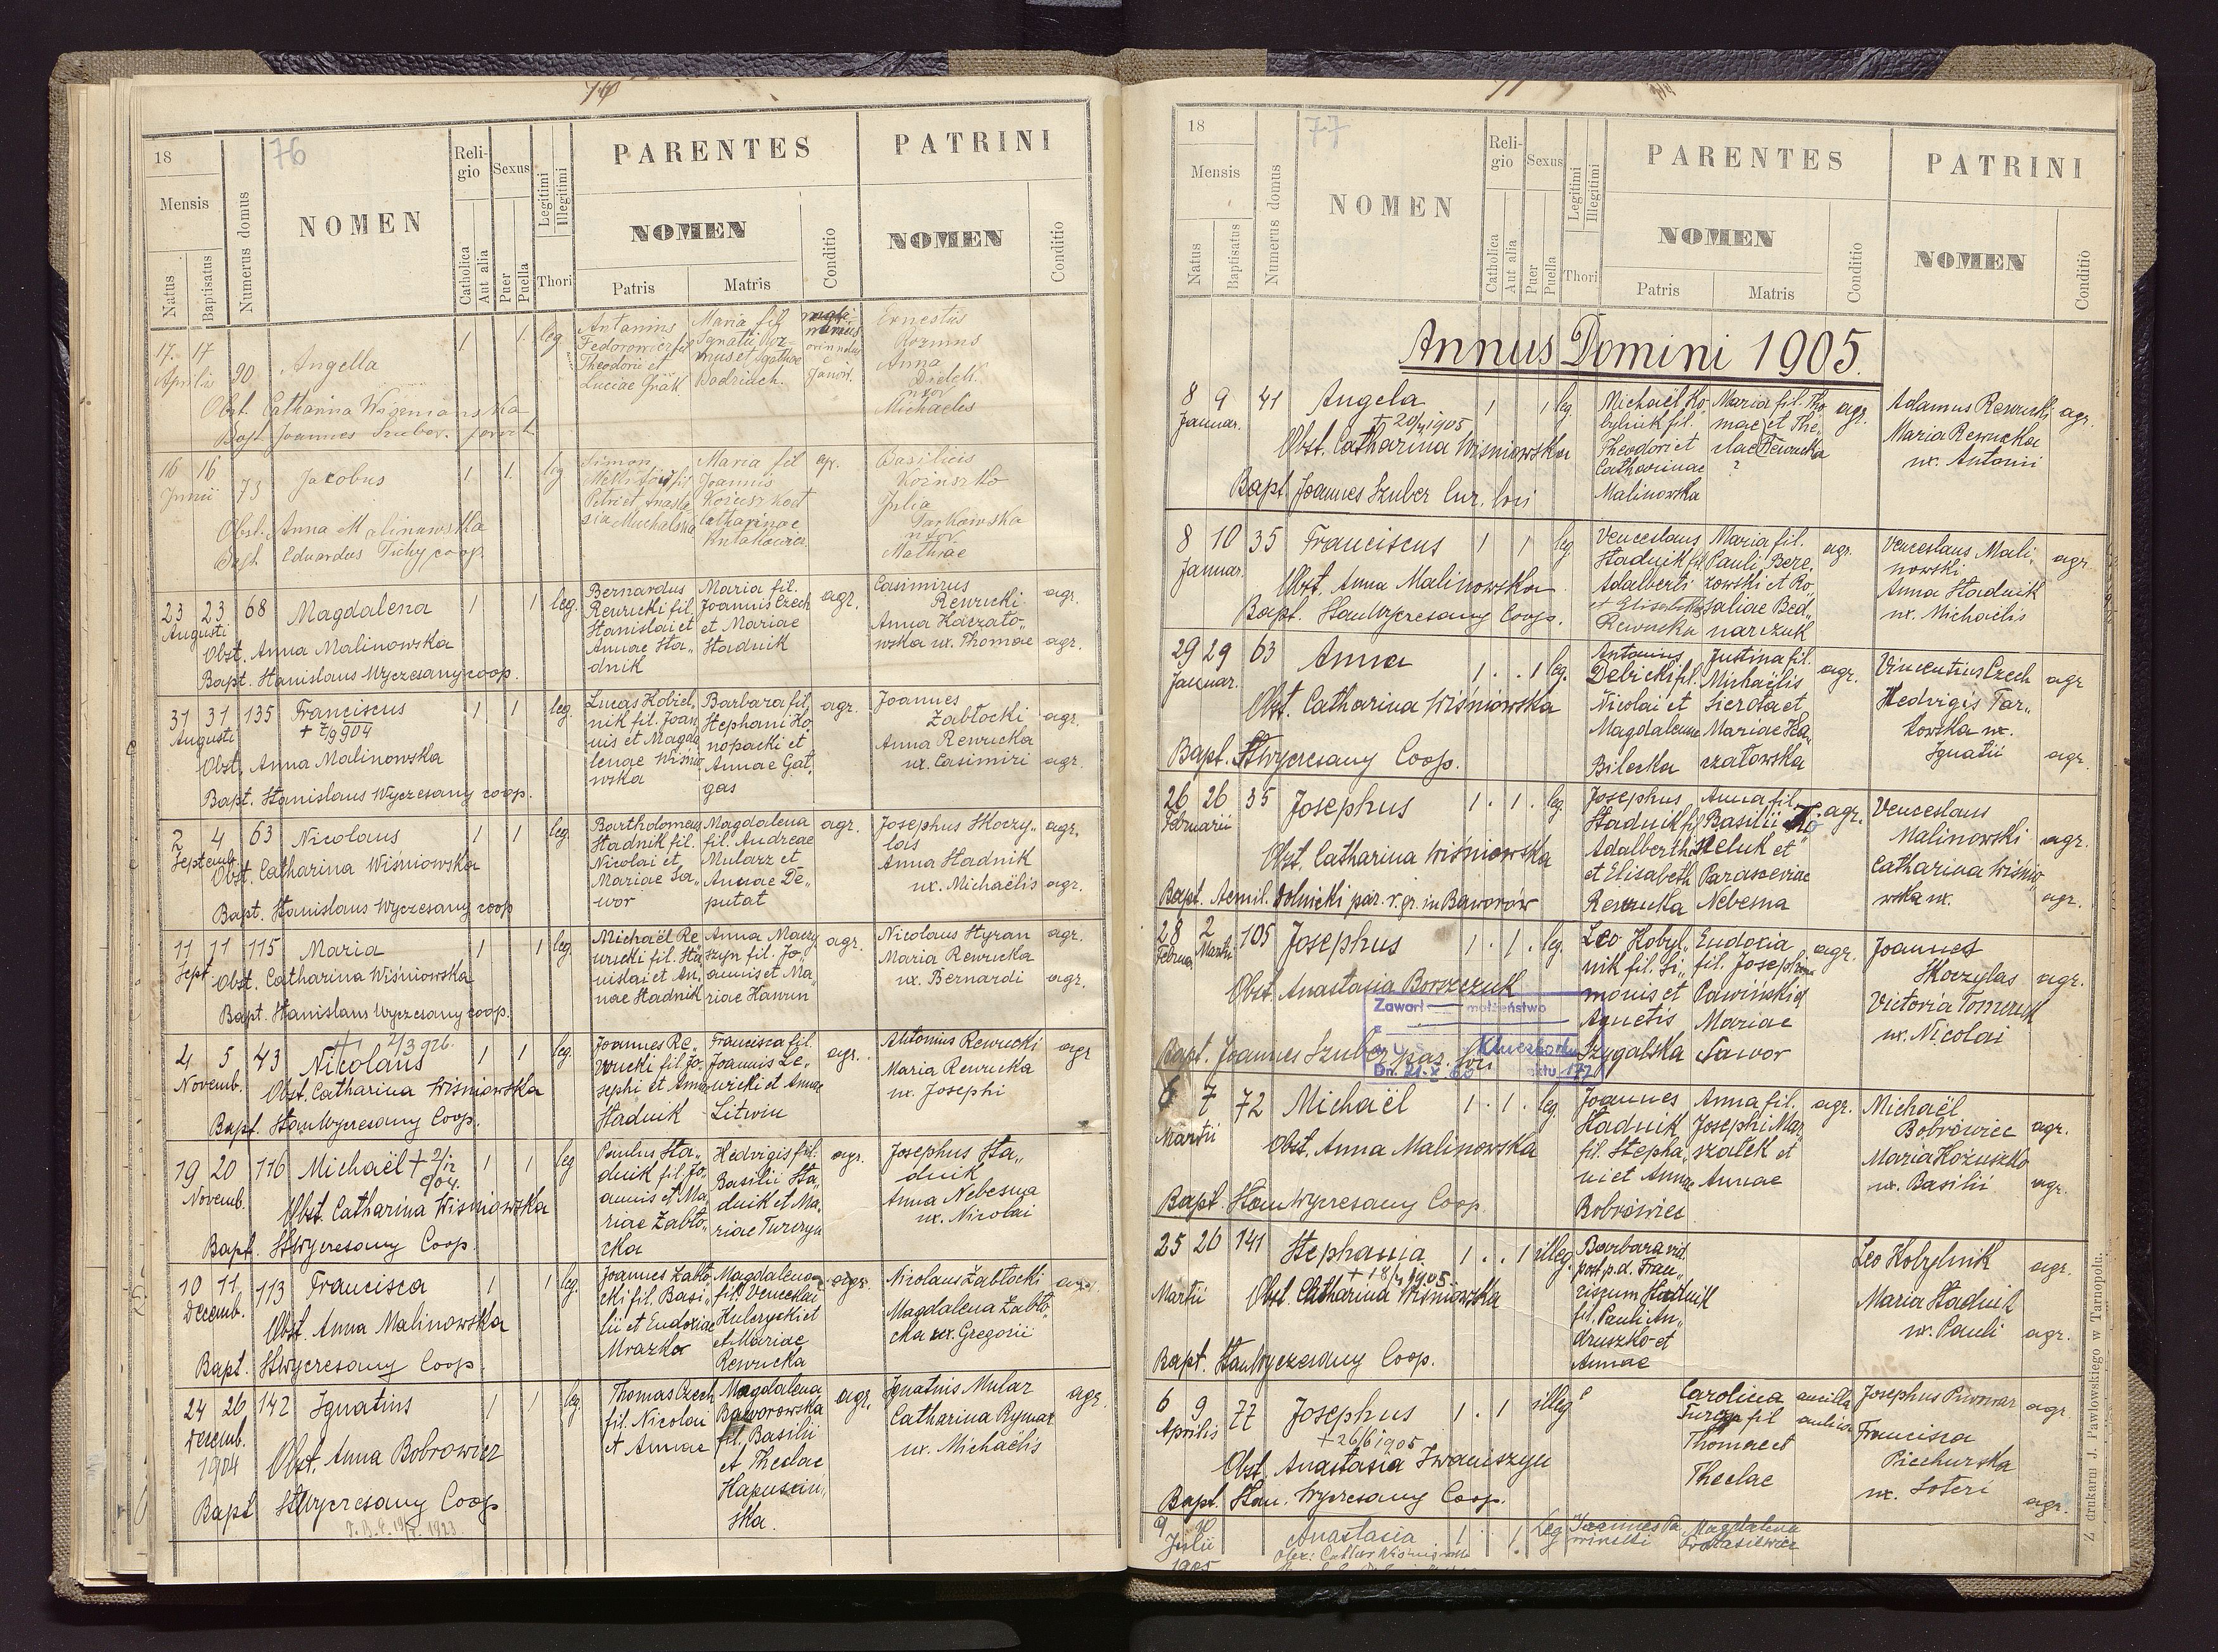 76
18
Mensis
Natus
Baptisatus
Numerus domus
NOMEN
Religio
Catholica
Aut alia
Sexus
Puer
Puella
Legitimi
Illegitimi
Thori
PARENTES
NOMEN
Patris
Matris
Conditio
PATRINI
NOMEN
Conditio
17. 17 Aprilis 90 Angella 1 1 leg
Antonius Fedorowicz fil Theodorii et Luciae Gnak
Maria fil Ignatii et Agathae Bodriach.
Ernestus
Anna
uxor
Michaelis
Obst. Catharina
Bapt. Joannes Szuber.
16 16 Junii 73 Jacobus 1 1 leg
Simon
Petri et
Maria fil Joannis et Catharinae
agr.
Basilius
Kożuszko
Julia
uxor
Mathiae
Obst. Anna Malinowska
Bapt Eduardus Tichy coop.
23 23 Augusti 68 Magdalena 1 1 leg.
Bernardus Rewucki fil. Stanislai et Annae Stadnik
Maria fil. Joannis Czech et Mariae Stadnik
agr.
Casimirus Rewucki agr.
Anna Kaczatowska ux. Thomae agr.
Obst. Anna Malinowska
Bapt. Stanislaus Wyczesany coop.
31 31 Augusti 135 Franciscus 1 1 leg.
+ 7/9 904
Lucas Kobielnik fil. Joannis et Magdalenae Wiśniowska
Barbara fil. Stephani Konopacki et Annae Gatgas
agr.
Joannes Żabłocki agr.
Anna Rewucka ux. Casimiri agr.
Obst. Anna Malinowska
Bapt. Stanislaus Wyczesany coop.
2 4 Septemb. 63 Nicolaus 1 1 leg
Bartholomeus Stadnik fil. Nicolai et Mariae Sawor
Magdalena fil. Andreae Mularz et Annae Deputat
agr.
Josephus Skoczylas agr.
Anna Stadnik ux. Michaëlis agr.
Obst. Catharina Wiśniowska
Bapt. Stanislaus Wyczesany coop
11 11 Sept. 115 Maria 1 1 leg.
Michaël Rewucki fil. Stanislai et Annae Stadnik
Anna Maczyszyn fil. Joannis et Mariae Hawun
agr.
Nicolaus Hyran agr.
Maria Rewucka ux. Bernardi agr.
Obst. Catharina Wiśniowska
Bapt. Stanislaus Wyczesany coop.
4 5 Novemb. 43 Nicolaus 1 1 leg.
Joannes Rewucki fil. Josephi et Annae Stadnik
Francisca fil. Joannis Lewicki et Annae Litwin
agr.
Antonius Rewucki agr
Maria Rewucka ux. Josephi
Obst. Catharina Wiśniowska
Bapt. Stan Wyczesany Coop.
19 20 Novemb. 116 Michaël + 2/12 904. 1 1 leg
Paulus Stadnik fil. Joannis et Mariae Żabłocka
Hedvigis fil. Basilii Stadnik et Mariae Turczyn
agr.
Josephus Stadnik
Anna Nebesna ux. Nicolai
Obst. Catharina Wisniowska
Bapt. StWyczesany Coop.
10 11 Decemb. 113 Francisca 1 1 leg.
Joannes Żabłocki fil. Basilii et Eudoxiae Mrazko
Magdalena fil. Venceslai et Mariae Rewucka
agr.
Nicolaus Żabłocki agr.
Magdalena Żabłocka ux. Gregorii
Obst. Anna Malinowska
Bapt. StWyczesany Coop.
24 26 Decemb. 1904 142 Ignatius 1 1 leg.
Thomas Czech fil. Nicolai et Annae
Magdalena Baworowska fil. Basilii et Theclae Hapuscińska.
agr.
Ignatius Mular agr.
Catharina Rymar ux. Michaëlis
Obst. Anna Bobrowicz
Bapt StWyczesany Coop
77
18
Mensis
Natus
Baptisatus
Numerus domus
NOMEN
Religio
Catholica
Aut alia
Sexus
Puer
Puella
Legitimi
Illegitimi
Thori
PARENTES
NOMEN
Patris
Matris
Conditio
PATRINI
NOMEN
Conditio
Annus Domini 1905.
8 9 Januar. 41 Angela 1 1 leg.
+ 20/4 1905
Michaël Kobylnik fil. Theodori et Catharinae Malinowska
Maria fil. Thomae et Theclae Rewucka
?
agr.
Adamus Rewucki agr.
Maria Rewucka ux. Antonii
Obst. Catharina Wisniowska
Bapt Joannes Szuber Cur. loci
8 10 Januar. 35 Franciscus 1 1 leg.
Venceslaus Stadnik fil Adalberti et Elisabeth Rewucka
Maria fil. Pauli Berezowski et Rosaliae Bednarczuk
agr.
Venceslaus Malinowski agr
Anna Stadnik ux. Michaëlis
Obst. Anna Malinowska
Bapt. Stan Wyczesany Coop.
29 29 Januar. 63 Anna 1 1 leg.
Antonius Debicki fil. Nicolai et Magdalenae Bilecka
Justina fil. Michaëlis Sierota et Mariae Kaczatowska
agr.
Vincentius Czech agr
Hedvigis Tarkowska ux. Ignatii agr.
Obst. Catharina Wiśniowska
Bapt. StWyczesany Coop.
26 26 Februarii 35 Josephus 1 1 leg.
Josephus Stadnik fil Adalberti et Elisabeth Rewucka
Anna fil. Basilii et Parasceviae Nebesna
agr.
Venceslaus Malinowski agr.
Catharina Wiśniowska ux. agr.
Obst. Catharina Wiśniowska
Bapt. Aemil. Dolnicki par. r. gr. in Baworów
28 Februar. 2 Martii 105 Josephus 1 1 leg.
Leo Kobylnik fil. Simonis et Agnetis Szygalska
Eudoxia fil. Josephi Pawiński et Mariae Sawor
agr.
Joannes Skoczylas agr.
Victoria Tomczuk ux. Nicolai
Obst. Anastasia Borszczuk
Zawarł małżeństwo
U S Kluczbork
aktu 177
Bapt. Joannes Szuber par. loci
6 7 Martii 72 Michaël 1 1 leg.
Joannes Stadnik fil. Stephani et Annae Bobrówiec
Anna fil. Josephi Marszałek et Annae
agr.
Michaël Bobrówiec agr.
Maria Kożuszko ux. Basilii agr.
Obst. Anna Malinowska
Bapt. Stan Wyczesany Coop.
25 26 Martii 141 Stephania 1 1 illeg.
+ 18/4 1905.
Barbara vid. post p. d. Franciscum Stadnik fil. Pauli Andruszko et Annae
Leo Kobylnik agr.
Maria Stadnik ux. Pauli agr.
Obst. Catharina Wiśniowska
Bapt. Stan Wyczesany Coop.
6 9 Aprilis 77 Josephus 1 1 illeg
+ 26/6 1905
Carolina Turczyn fil Thomae et Theclae
ancilla aulica
Josephus Piwowar agr.
Francisca Piechurska ux. Soteri agr.
Obst. Anastasia Iwaniszyn
Bapt. Stan. Wyczesany Coop.
9 Julii 1905 Anastasia 1 1 Leg
Magdalena Protasiewicz
Z drukarni J. Pawłowskiego w Tarnopolu.